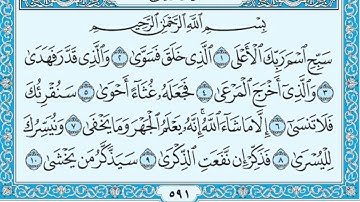 بِسْمِ اللَّهِ الرَّحْمَٰنِ الرَّحِيمِ
سَبِّحِ اسْمَ رَبِّكَ الْأَعْلَى ١ الَّذِي خَلَقَ فَسَوَّىٰ ٢ وَالَّذِي قَدَّرَ فَهَدَىٰ
٣ وَالَّذِي أَخْرَجَ الْمَرْعَىٰ ٤ فَجَعَلَهُ غُثَاءً أَحْوَىٰ ٥ سَنُقْرِئُكَ
فَلَا تَنسَىٰ ٦ إِلَّا مَا شَاءَ اللَّهُ إِنَّهُ يَعْلَمُ الْجَهْرَ وَمَا يَخْفَىٰ ٧ وَنُيَسِّرُكَ
لِلْيُسْرَىٰ ٨ فَذَكِّرْ إِن نَّفَعَتِ الذِّكْرَىٰ ٩ سَيَذَّكَّرُ مَن يَخْشَىٰ ١٠
٥٩١